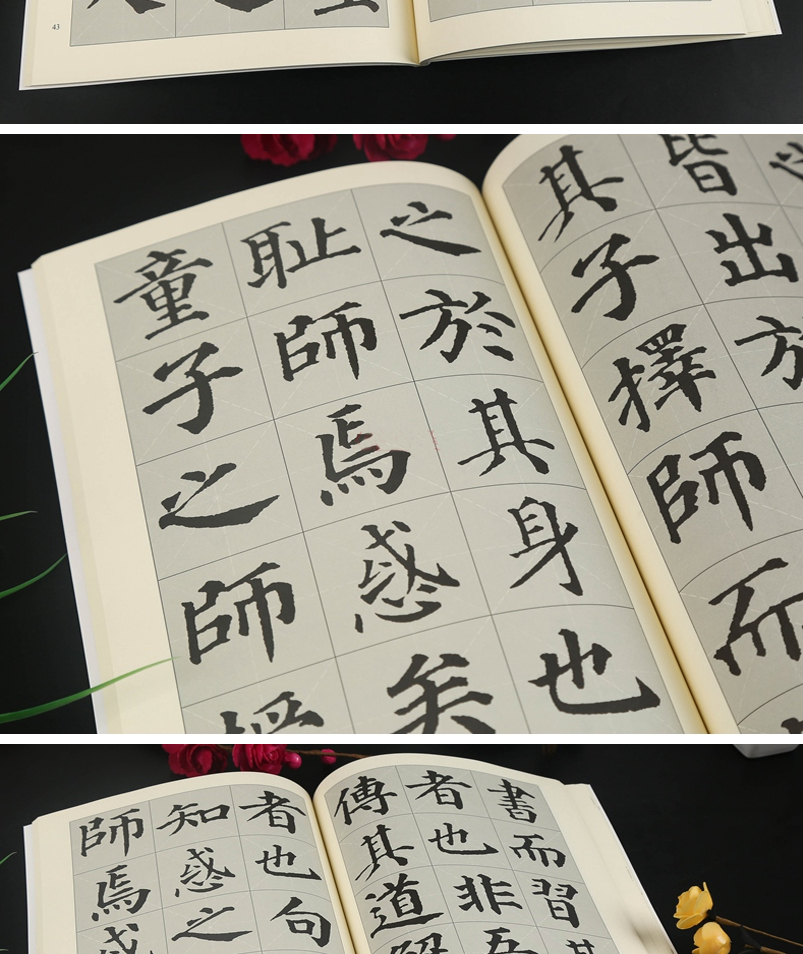 43
皆出於
其子擇師而
之於其身也
耻師焉惑矣
童子之師授
書而習其
者也非吾
傳其道解
者也句
知惑之
師焉惑